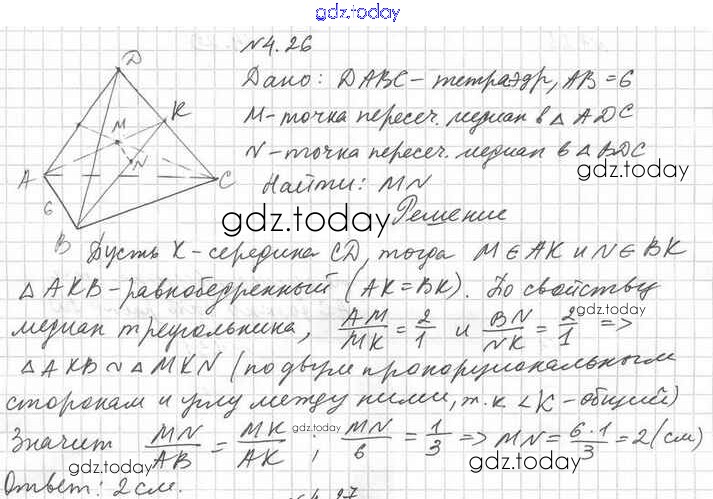 gdz.today
№4.26
Дано: DABC - тетраэдр, AB = 6
M - точка пересеч. медиан в △ADC
N - точка пересеч. медиан в △BDC
gdz.today
Найти: MN
gdz.today
Решение
D
K
M
N
A
C
6
B
Пусть K - середина CD, тогда M ∈ AK и N ∈ BK
△AKB - равнобедренный (AK = BK). По свойству
gdz.today
медиан треугольника, AM/MK = 2/1 и BN/NK = 2/1 =>
△AKB ~ △MKN (по двум пропорциональным
сторонам и углу между ними, т.к ∠K - общий)
Значит MN/AB = MK/AK ; MN/6 = 1/3 => MN = 6·1/3 = 2 (см)
gdz.today
gdz.today
gdz.today
Ответ: 2 см.
№4.27